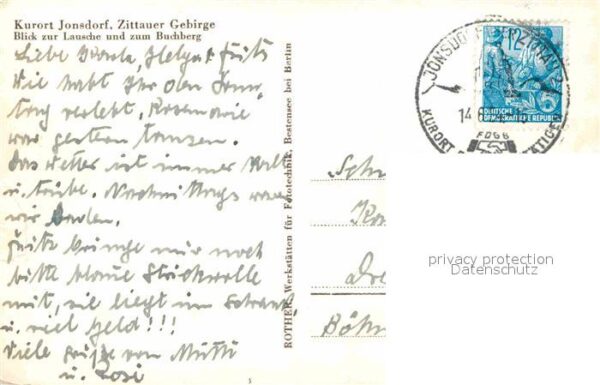 Kurort Jonsdorf, Zittauer Gebirge
Blick zur Lausche und zum Buchberg
Liebe Helga Fritz
Wie habt Ihr den Sonn-
tag verlebt, Rosemarie
war gestern tanzen.
Das Wetter ist immer kalt
u. trübe. Nachmittags waren
wir baden.
Fritz bringe mir noch
bitte blaue Strickwolle
mit, sie liegt im Schrank
u. viel Geld!!!
Viele Grüße von Mutti
u. Rosi
ROTHER, Werkstätten für Fototechnik, Bestensee bei Berlin
JONSDORF
14
KURORT
FDGB
12
DEUTSCHE
DEMOKRATISCHE REPUBLIK
Sch
Dre
Böh
privacy protection
Datenschutz